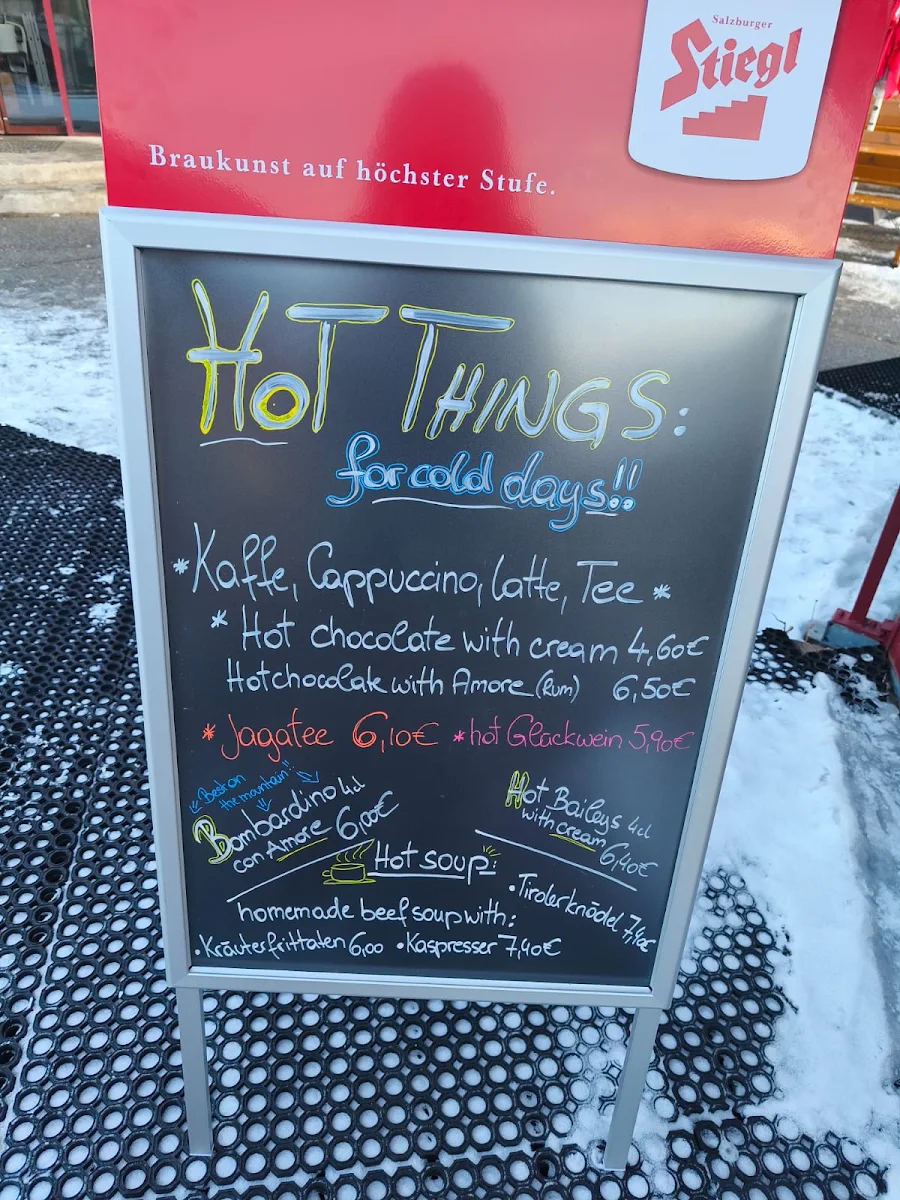 Salzburger
Stiegl
Braukunst auf höchster Stufe.
HOT THINGS:
for cold days!!
*Kaffe, Cappuccino, Latte, Tee *
* Hot chocolate with cream 4,60€
Hot chocolate with Amore (Rum) 6,50€
*Jagatee 6,10€ *hot Glückwein 5,90€
Best on
the mountain!!
Bombardino 4cl
con Amore 6,00€
Hot Baileys 4cl
with cream
6,40€
Hot soup:
homemade beef soup with:
•Tirolerknödel 7,40€
•Kräuterfrittaten 6,00 •Kaspresser 7,40€